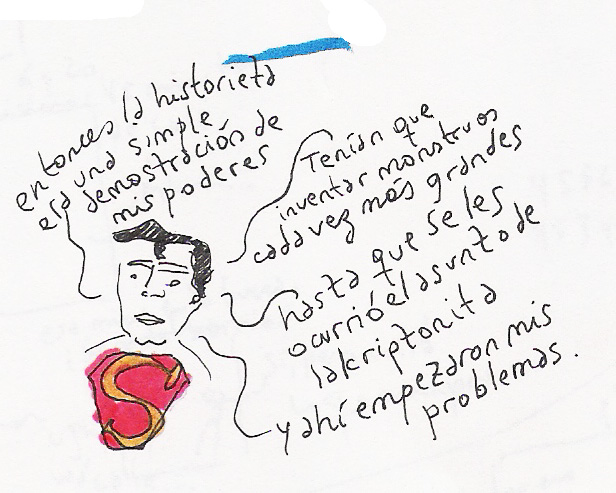 entonces la historieta
era una simple
demostración de
mis poderes
Tenían que
inventar monstruos
cada vez más grandes
hasta que se les
ocurrió el asunto de
la kriptonita
y ahí empezaron mis
problemas.
S